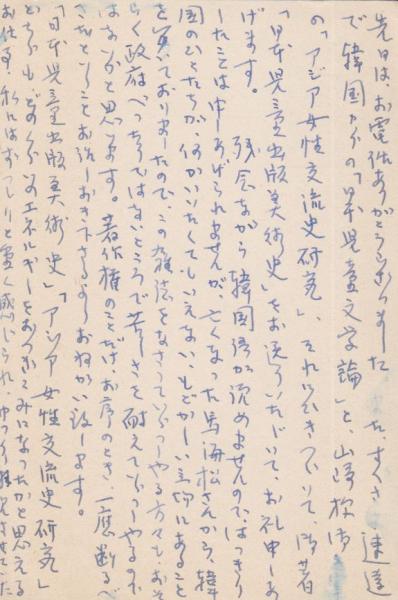 先日は、お電話ありがとうございました また、すぐさま速達
で韓国からの「日本児童文学論」と、山崎朋子
の「アジア女性交流史研究」、それにひきつづいて、御著
「日本児童出版美術史」をお送りいただいて、お礼申しあ
げます。 残念ながら韓国語が読めませんので、はっきり
したことは申しあげられませんが、亡くなった馬海松さんから、韓
国のひとたちが、何かいいたくてもいえない、もどかしい立場にあること
を聞いておりましたので、この雑誌をなさっていらっしゃる方々も、おそ
らく政府べったりではないところで苦しさを耐えていらっしゃるので
はないかと思います。 著作権のことだけ、お序のとき、一応断るべ
きだということお治しおき下さるようおねがい致します。
「日本児童出版美術史」「アジア女性交流史研究」
どちらもどのくらいのエネルギーをおつぎこみになったかと思える
お仕事、私にはずっしりと重く感じられ、ゆっくり拝見させていた